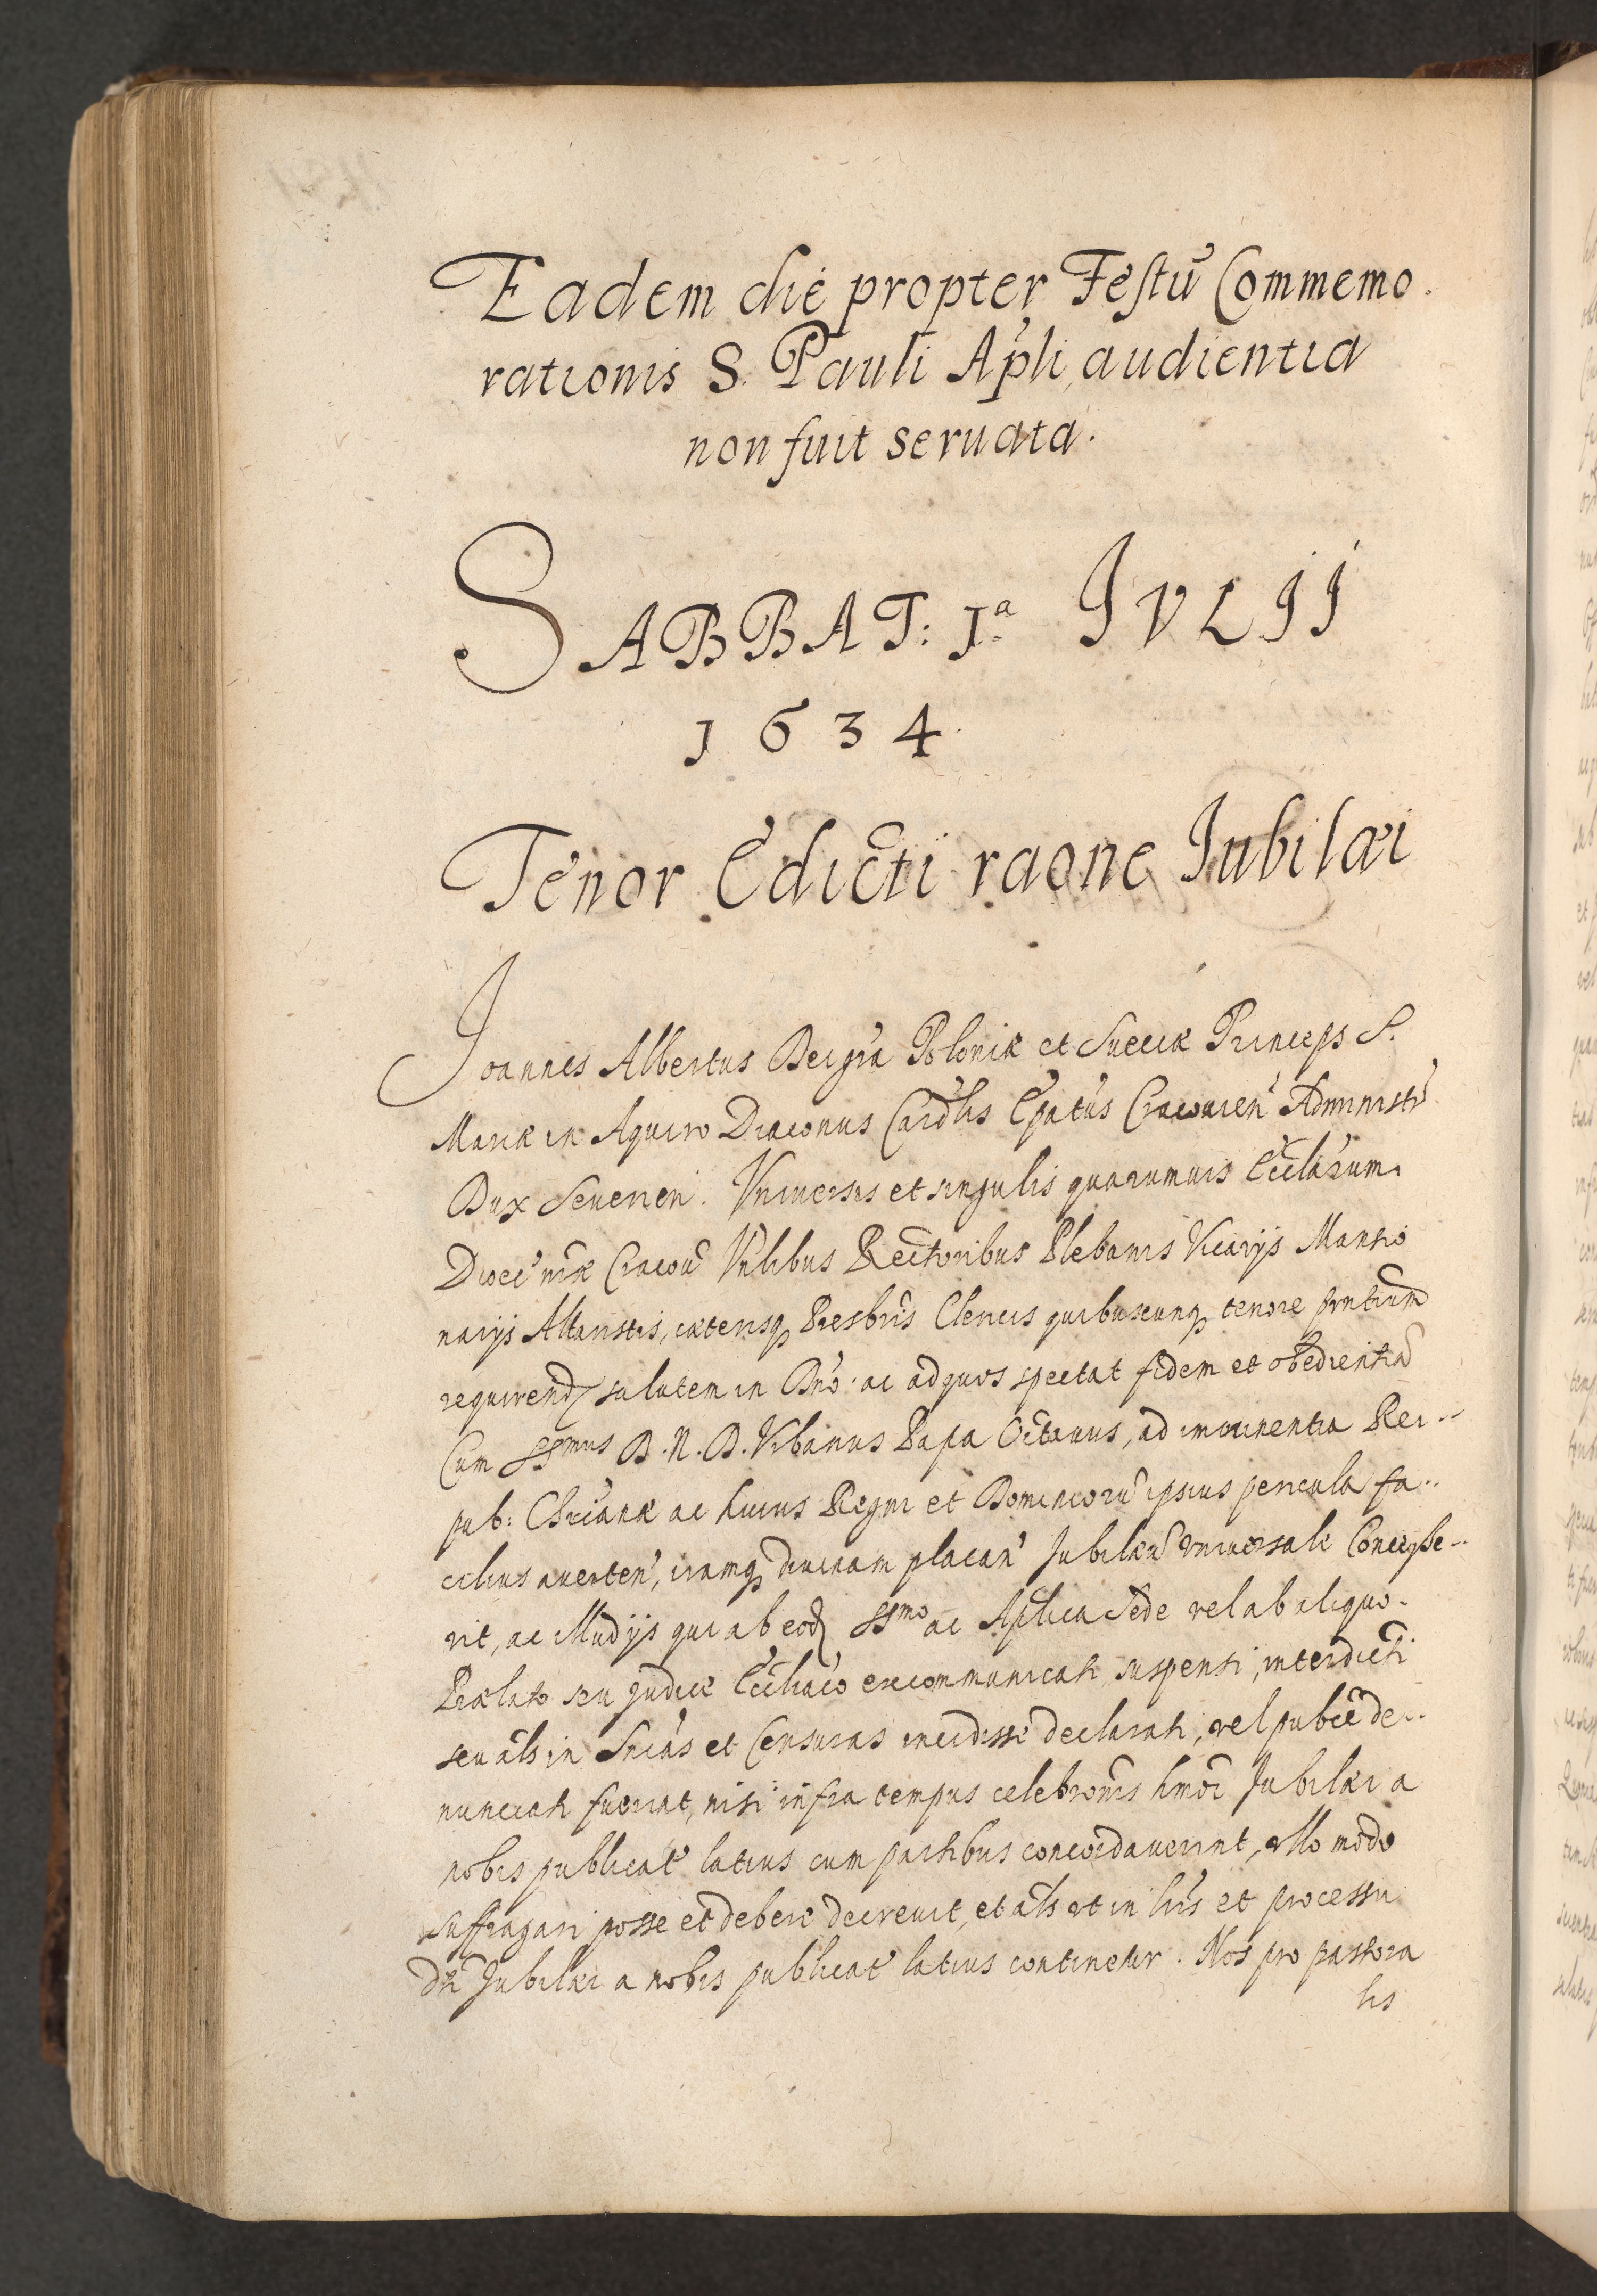 Eadem die propter Festū Commemo.
rationis S. Pauli Apli, audientia
non fuit seruata.
SABBAT: 1.a IVLII
1634
Tenor Edicti raone Iubilæi
Joannes Albertus Dei gra Poloniæ et Sueciæ Princeps S.
Mariæ in Aquiro Diaconus Cardlis Epatus Cracouien Administr
Dux Seuerien. Vniuersis et singulis quarumuis Eccliarum
Dioec nræ Cracou Vnlibus Rectoribus Plebanis Vicarijs Mansio
narijs Altaristis, cæterisq Presbris Clericis quibuscunq tenore pntium
requirend salutem in Dno. ac ad quos spectat fidem et obedientiā
Cum SSmus D. N. D. Vrbanus Papa Octauus, ad imminentia Rei--
pub: Chrianæ ac huius Regni et Dominiorū ipsius pericula fa--
cilius auerten, iramq diuinam placan Jubilæū vniuersale Concesse--
rit, ac illud ijs qui ab eod SSmo ac Aplica Sede vel ab aliquo.
Prælato seu judice Eccliaco excommunicati suspensi, interdicti
seu als in Snias et Censuras incidisse declarati, vel publice de--
nunciati fuerint, nisi infra tempus celebronis hmoi Jubilæi a
nobis publicat latius cum partibus concordauerint, ullo modo
suffragari posse et debere decreuit, et als vt in lris et processu
dti Jubilæi a nobis publicat latius continetur. Nos pro pastora
lis